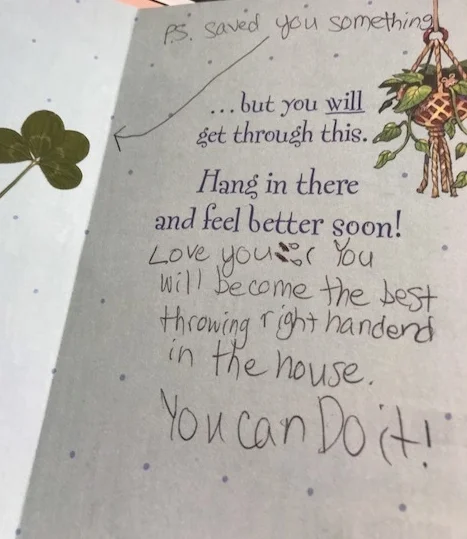 PS. saved you something
...but you will
get through this.
Hang in there
and feel better soon!
Love you You
will become the best
throwing right handend
in the house.
You can Do it!